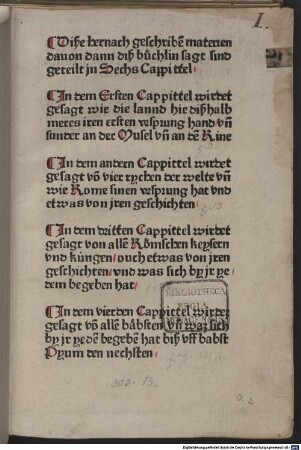 1.
¶Dise hernach geschribē materien
dauon dann diß bůchlin sagt sind
geteilt jn Sechs Cappittel
¶In dem Ersten Cappittel wirdet
gesagt wie die lannd hie dißhalb
meres iren ersten vrsprung hand vn̄
sunder an der Musel vn̄ an dē Rine
¶In dem andern Cappittel wirdet
gesagt vō vier rychen der welte vn̄
wie Rome sinen vrsprung hat vnd
etwas von jren geschichten
¶In dem dritten Cappittel wirdet
gesagt von allē Rӧmschen keysern
vnd kúngen / ouch etwas von jren
geschichten / vnd was sich by jr ye-
dem begeben hat
¶In dem vierden Cappittel wirdet
gesagt vō allē bäbsten vn̄ waz sich
by jr yedē begebē hat biß vff babst
Pyum den nechsten
BIBLIOTHECA
REGIA
MONACENSIS
a 2